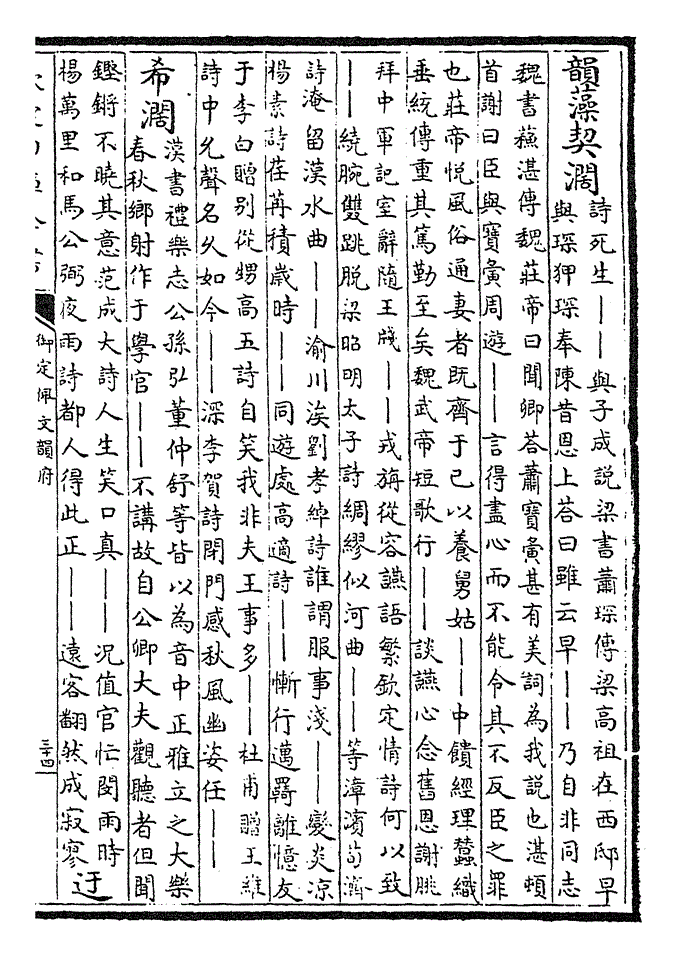 韻藻契濶詩死生｜｜與子成說梁書蕭琛傳梁高祖在西邸早
與琛狎琛奉陳昔恩上荅曰雖云早｜｜乃自非同志
魏書蘓湛傳魏莊帝曰聞卿荅蕭寶夤甚有美詞為我說也湛頓
首謝曰臣與寶夤周遊｜｜言得盡心而不能令其不反臣之罪
也莊帝悅風俗通妻者既齊于己以養舅姑｜｜中饋經理蠶織
垂統傳重其篤勤至矣魏武帝短歌行｜｜談讌心念舊恩謝朓
拜中軍記室辭隨王牋｜｜戎旃從容讌語繁欽定情詩何以致
｜｜繞腕雙跳脫梁昭明太子詩綢繆似河曲｜｜等漳濱荀濟
詩淹留漢水曲｜｜渝川涘劉孝綽詩誰謂服事淺｜｜變炎涼
楊素詩荏苒積歲時｜｜同遊處高適詩｜｜慚行邁羇離憶友
于李白贈別從甥高五詩自笑我非夫王事多｜｜杜甫贈王維
詩中允聲名久如今｜｜深李賀詩閉門感秋風幽姿任｜｜
希濶漢書禮樂志公孫弘董仲舒等皆以為音中正雅立之大樂
春秋鄉射作于學官｜｜不講故自公卿大夫觀聽者但聞
鏗鏘不曉其意范成大詩人生笑口真｜｜況值官忙閔雨時
楊萬里和馬公弼夜雨詩都人得此正｜｜遠客翻然成寂寥迂
御定佩文韻府
三十四